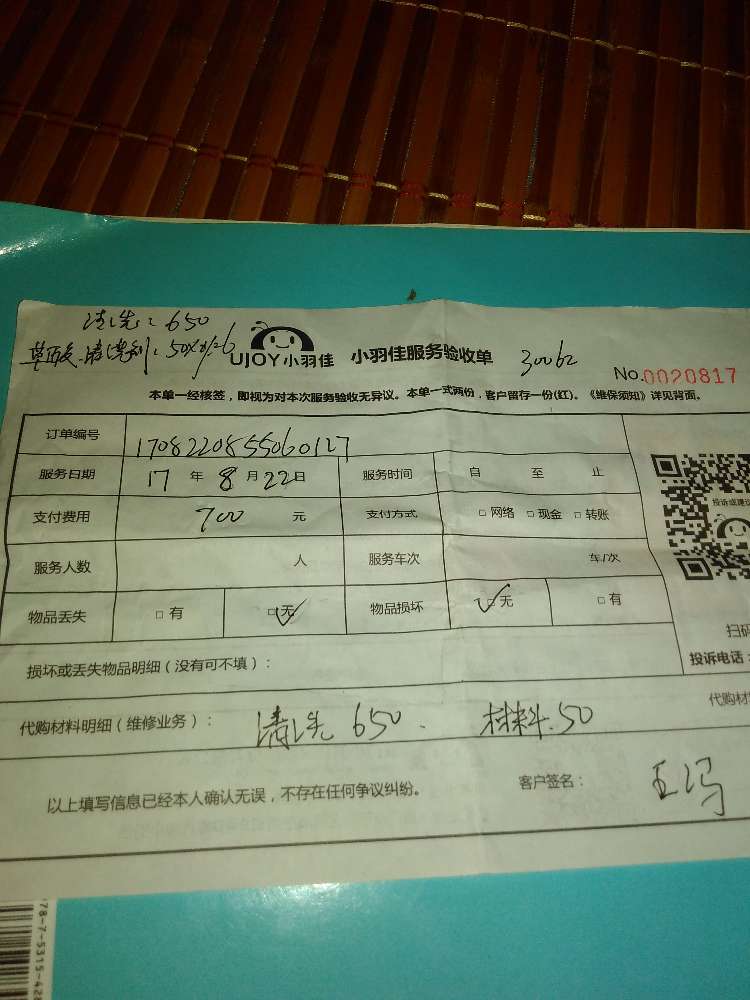 清洗：650
草酸.清洁剂：50
UJOY小羽佳 小羽佳服务验收单 30062
No.0020817
本单一经核签，即视为对本次服务验收无异议。本单一式两份，客户留存一份(红)。《维保须知》详见背面。
订单编号 1708220855060127
服务日期 17 年 8 月 22 日 服务时间 自 至 止
支付费用 700 元 支付方式 □ 网络 □ 现金 □ 转账
投诉或建议
服务人数 人 服务车次 车/次
物品丢失 □ 有 □ 无 物品损坏 □ 无 □ 有
扫码
投诉电话：
损坏或丢失物品明细（没有可不填）：
代购材料明细（维修业务）： 清洗 650. 材料.50 代购材
以上填写信息已经本人确认无误，不存在任何争议纠纷。 客户签名： 王冯
78-7-5315-428